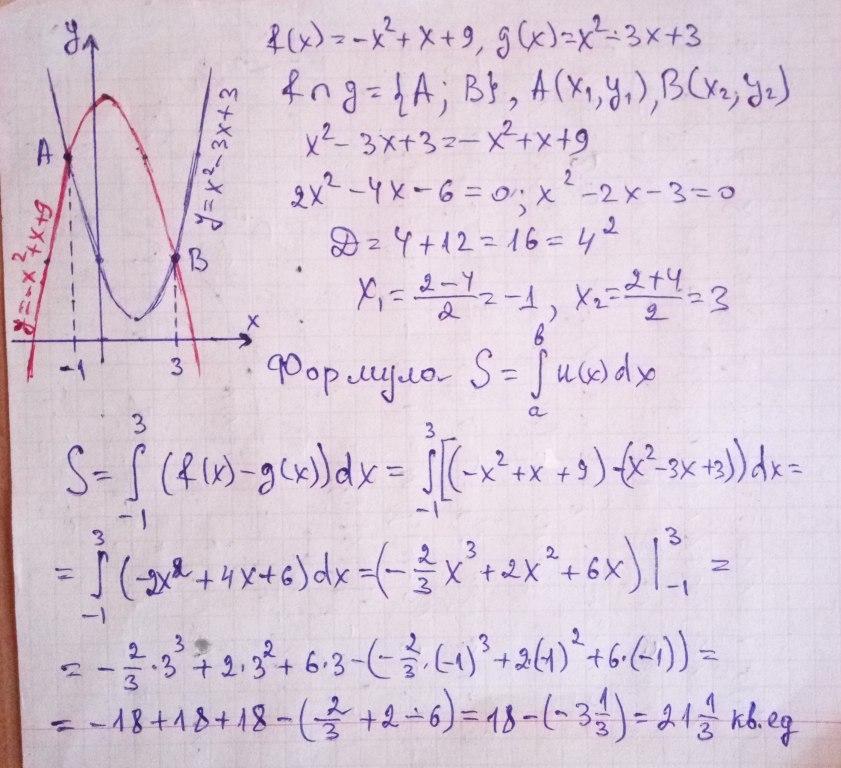 f(x) = -x² + x + 9, g(x) = x² - 3x + 3
f ∩ g = {A; B}, A(x₁, y₁), B(x₂; y₂)
x² - 3x + 3 = -x² + x + 9
2x² - 4x - 6 = 0; x² - 2x - 3 = 0
D = 4 + 12 = 16 = 4²
x₁ = (2-4)/2 = -1, x₂ = (2+4)/2 = 3
y
A
B
x
-1
3
y = -x² + x + 9
y = x² - 3x + 3
Формула S = ∫ₐᵇ u(x) dx
S = ∫₋₁³ (f(x) - g(x)) dx = ∫₋₁³ [(-x² + x + 9) - (x² - 3x + 3)) dx =
= ∫₋₁³ (-2x² + 4x + 6) dx = (-2/3 x³ + 2x² + 6x) |₋₁³ =
= -2/3 · 3³ + 2 · 3² + 6 · 3 - (-2/3 · (-1)³ + 2(-1)² + 6 · (-1)) =
= -18 + 18 + 18 - (2/3 + 2 - 6) = 18 - (-3 1/3) = 21 1/3 кв. ед